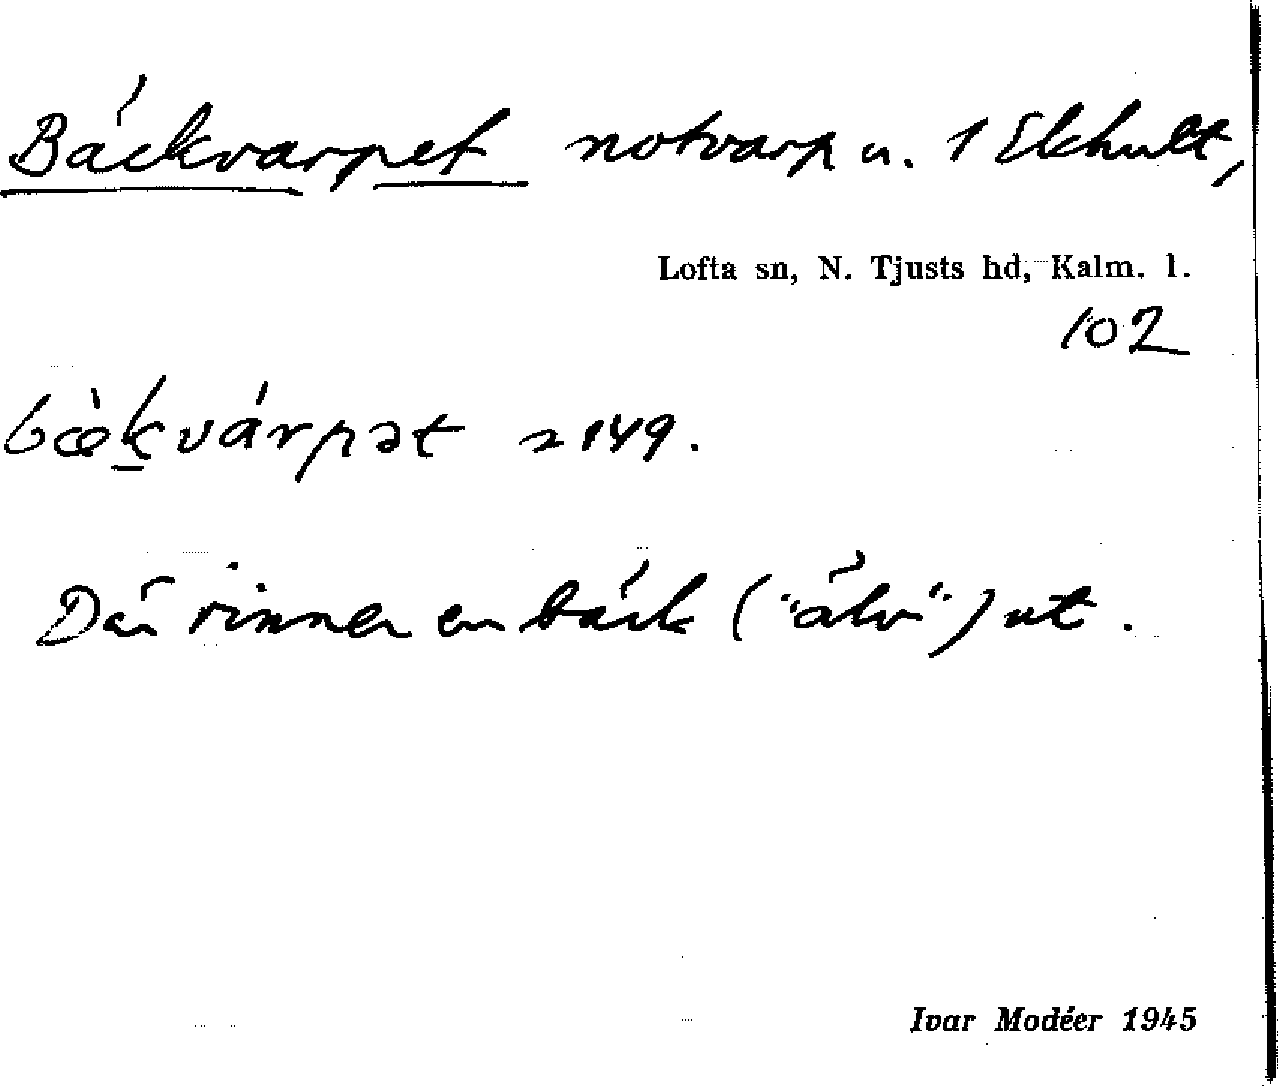 Bäckvarpet notvarp u. 1 Ekhult,
Lofta sn, N. Tjusts hd, Kalm. l.
102
bæ̀kvárpət 149.
Där rinner en bäck ("älv") ut.
Ivar Modéer 1945